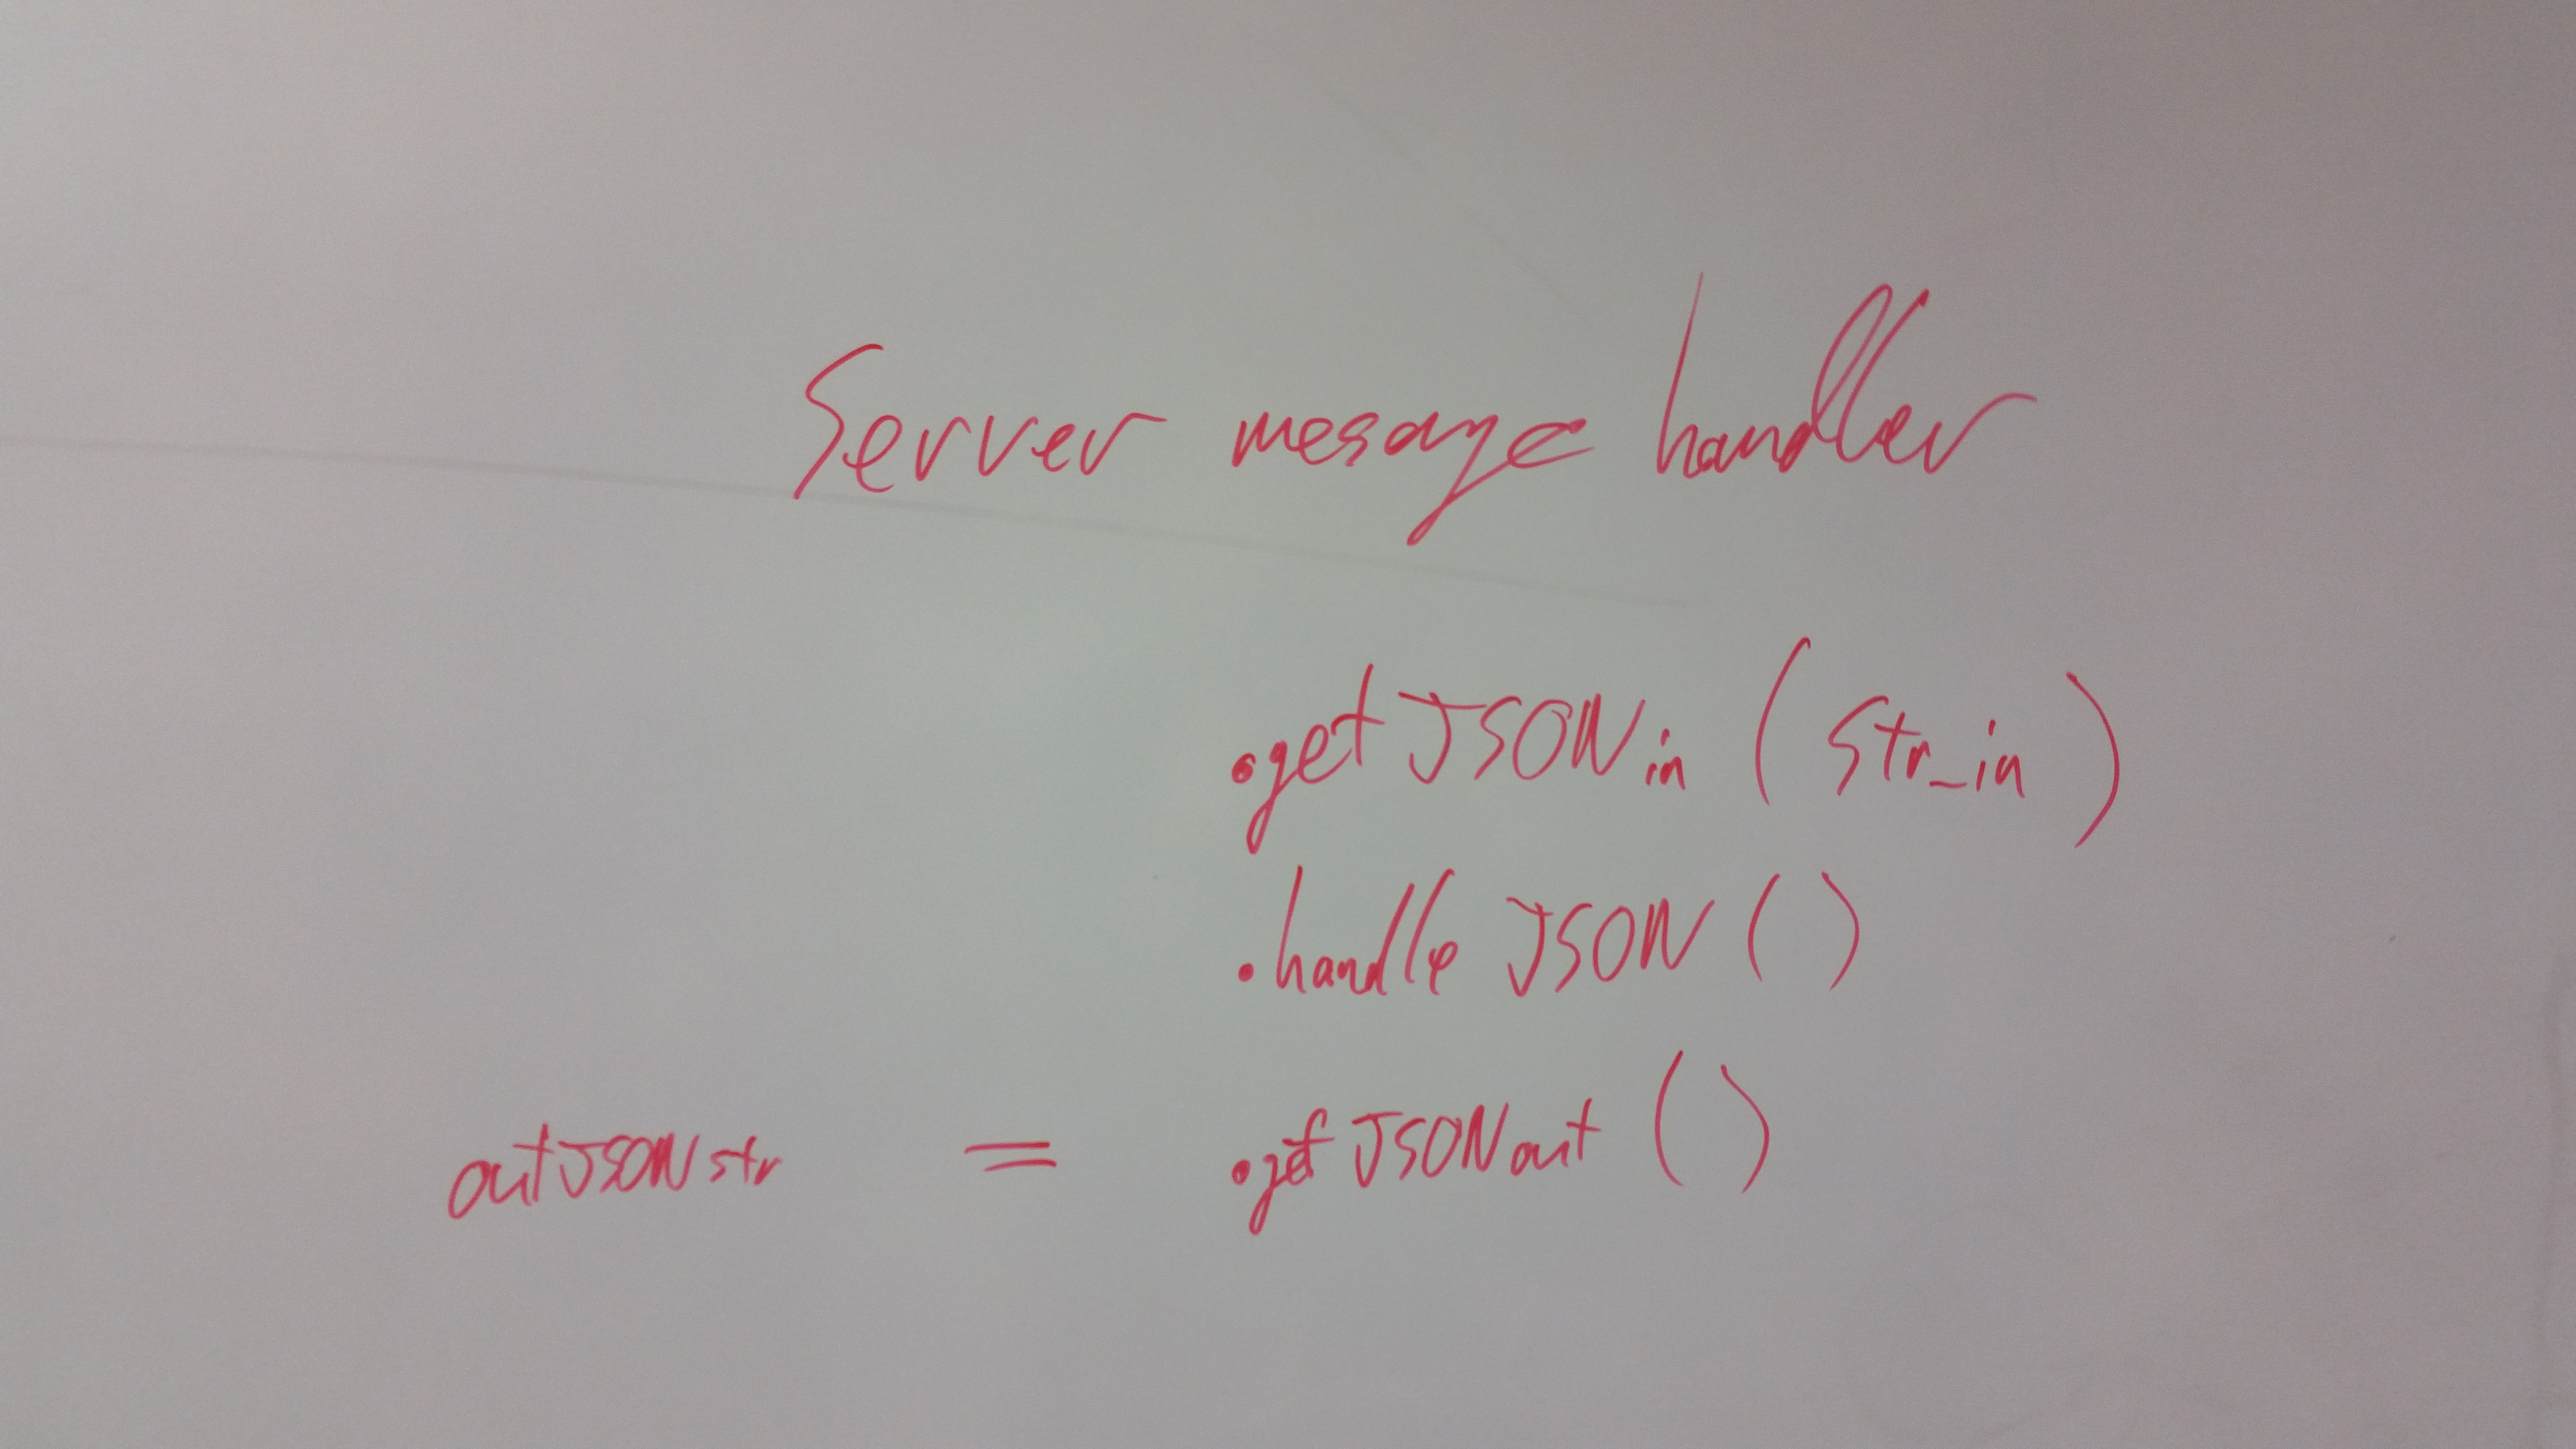 Server mesage handler
.getJSONin (Str_in)
.handle JSON ()
outJSONstr = .get JSONout ()